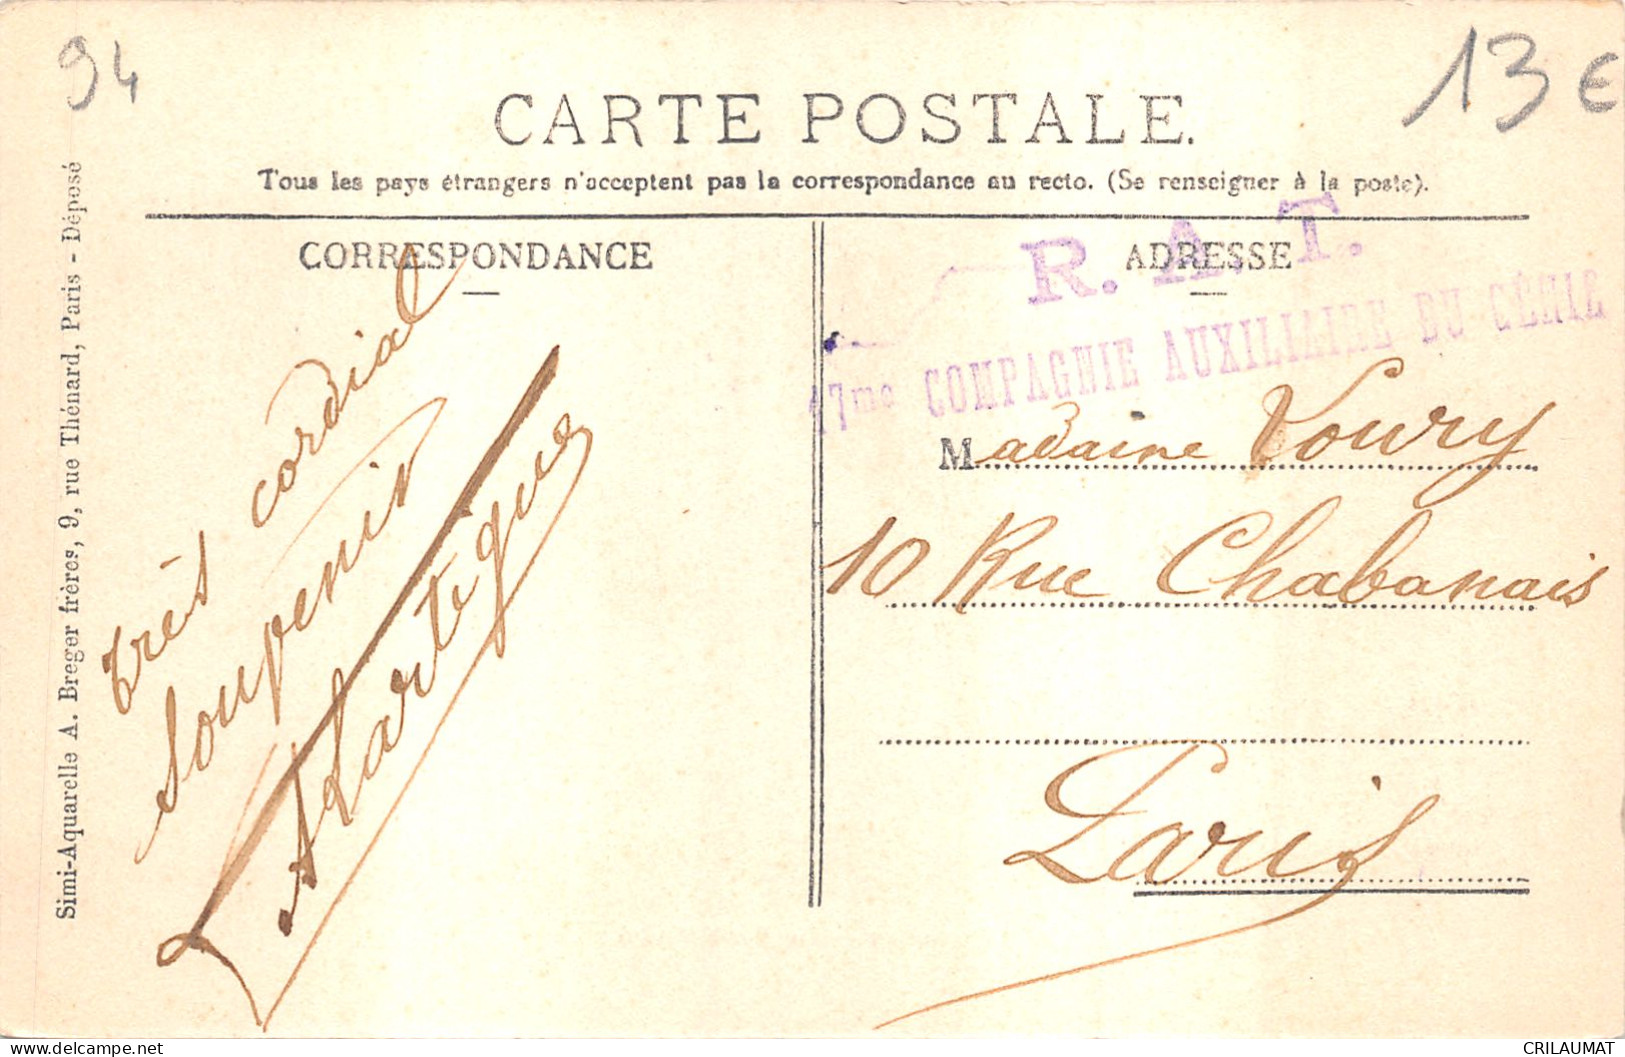 94
13 €
CARTE POSTALE.
Tous les pays étrangers n'acceptent pas la correspondance au recto. (Se renseigner à la poste).
CORRESPONDANCE
ADRESSE
R. A. T.
17me COMPAGNIE AUXILIAIRE DU GÉNIE
très cordial
souvenir
Lartigue
Madame Voury
10 Rue Chabanais
Paris
Simi-Aquarelle A. Breger frères, 9, rue Thénard, Paris - Déposé
https://www.delcampe.net
CRILAUMAT